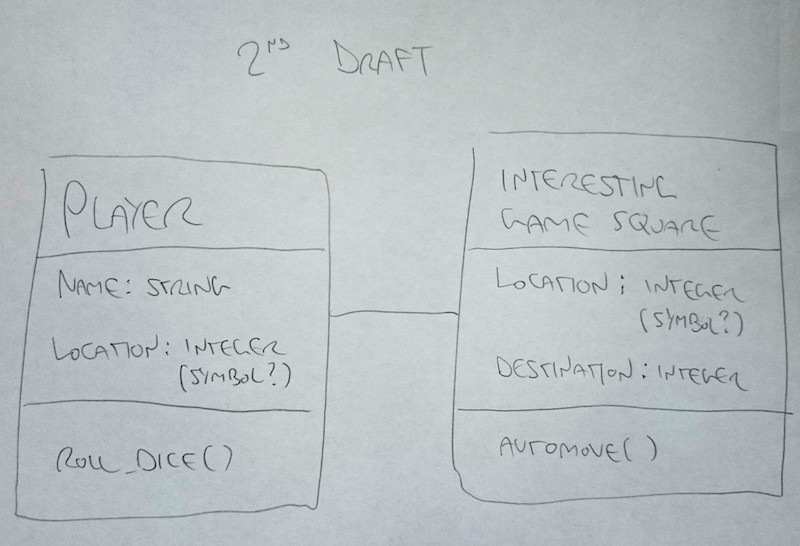 2ND DRAFT
PLAYER
NAME: STRING
LOCATION: INTEGER
(SYMBOL?)
ROLL_DICE()
INTERESTING
GAME SQUARE
LOCATION: INTEGER
(SYMBOL?)
DESTINATION: INTEGER
AUTOMOVE()